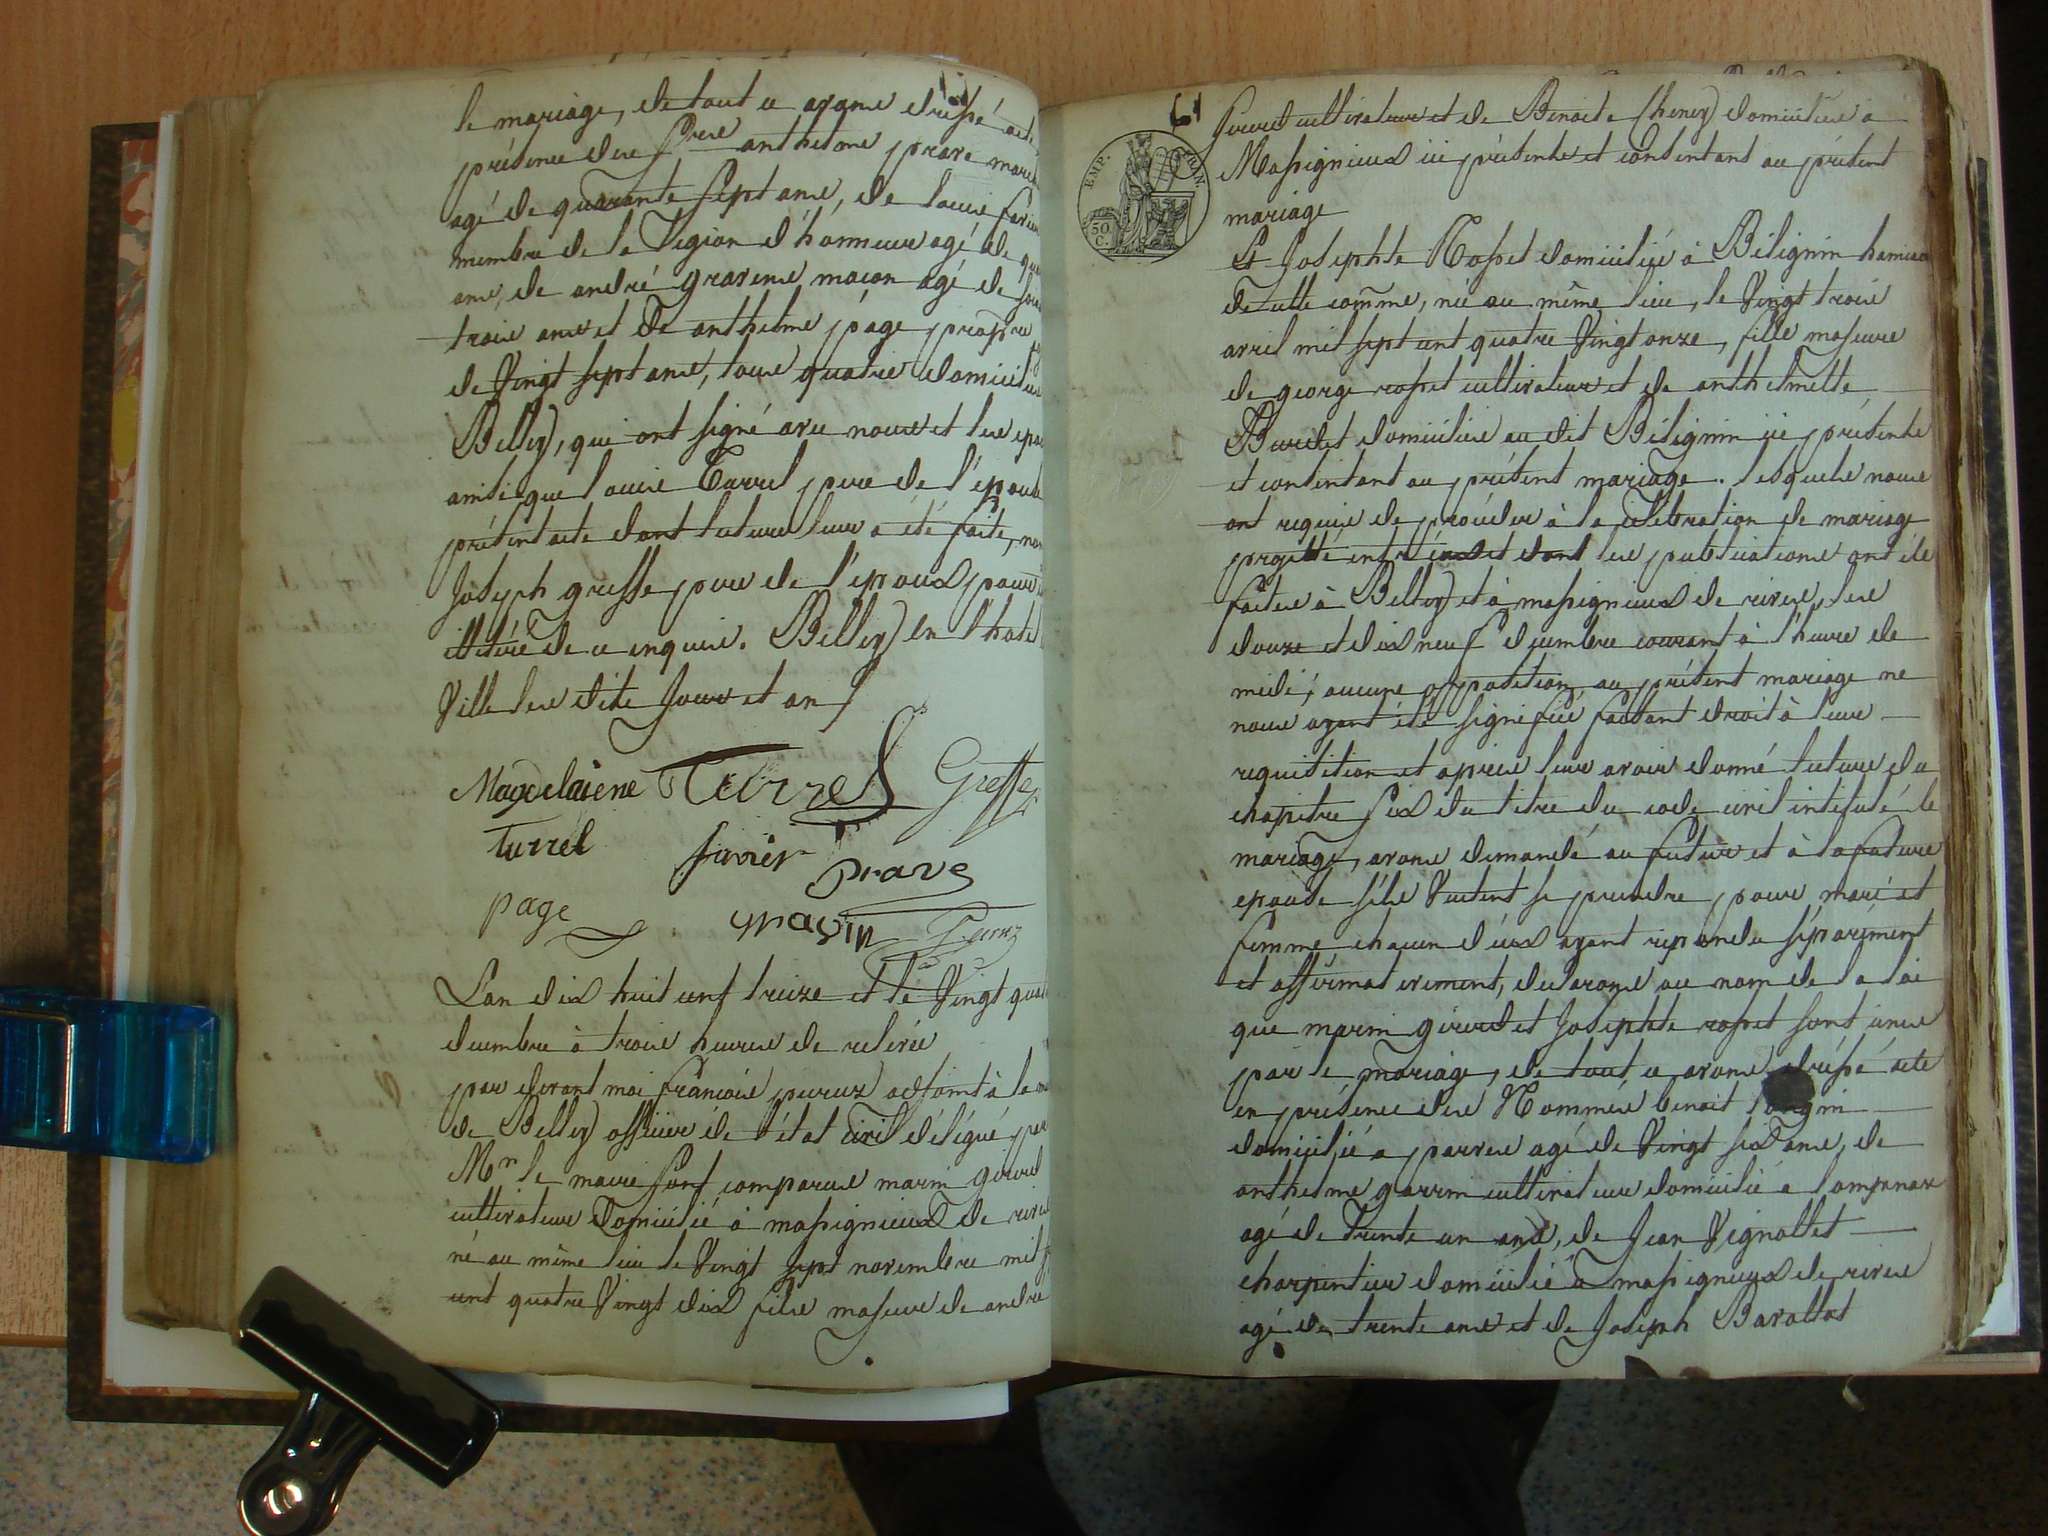 le mariage, de tout ce avons dressé acte
présence des Srs anthelme prave
agé de quarante sept ans, de louis
membre de la Legion d'honneur agé de
ans, de andré maçon agé de
trois ans et de anthelme page
de Vingt sept ans, tous quatre domiciliés
Belley, qui ont signé avec nous et les
ainsi que louis Turrel pere de l'épouse
présent acte dont lecture leur a été faite, non
Joseph greffe pere de l'époux pour
illitéré de ce enquis. Belley en l'hotel
Ville les dits Jour et an
Magdelaiene Turrel Greffe
turrel
page prave
L'an dix huit cent treize et le Vingt
decembre à trois heures de relevée
par devant moi François adjoint à la
de Belley officier de l'état civil délégué par
Mr le maire sont comparus marin girerd
cultivateur domicilié à massignieux de rives
né au même lieu le Vingt sept novembre mil
cent quatre Vingt dix fils majeur de andré
61
EMP. FRAN.
50
C.
Girerd cultivateur et de Benoite domiciliés à
Massignieux ici présents et consentant au présent
mariage
Et Josephte Rosset domiciliée à Bélignin hameau
de cette comme, née au même lieu, le Vingt trois
avril mil sept cent quatre Vingt onze, fille majeure
de george rosset cultivateur et de anthelmette
domiciliés au dit Bélignin ici présents
et consentant au présent mariage. lesquels nous
ont requis de procéder à la célébration de mariage
projetté entr'eux et dont les publications ont été
faites à Belley et à massignieux de rives, les
douze et dix neuf decembre courant à l'heure de
midi, aucune opposition au présent mariage ne
nous ayant été signifiée faisant droit à leur
requisition et après leur avoir donné lecture du
chapitre six du titre du code civil intitulé le
mariage, avons demandé au futur et à la future
epouse s'ils Veulent se prendre pour mari et
femme chacun d'eux ayant repondu séparément
et affirmativement, declarons au nom de la loi
que marin girerd et Josephte rosset sont unis
par le mariage, de tout ce avons dressé acte
en présence des Nommés benoit
domicilié a parves agé de Vingt six ans, de
anthelme cultivateur domicilié a
agé de trente un ans, de Jean Vignollet
charpentier domicilié à massigneux de rives
agé de trente ans et de Joseph